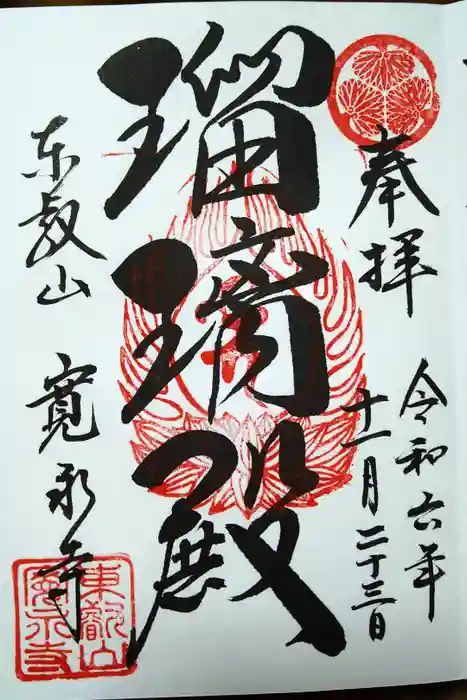 奉拝
令和六年
十一月二十三日
瑠璃殿
東叡山
寛永寺
東叡山
寛永寺